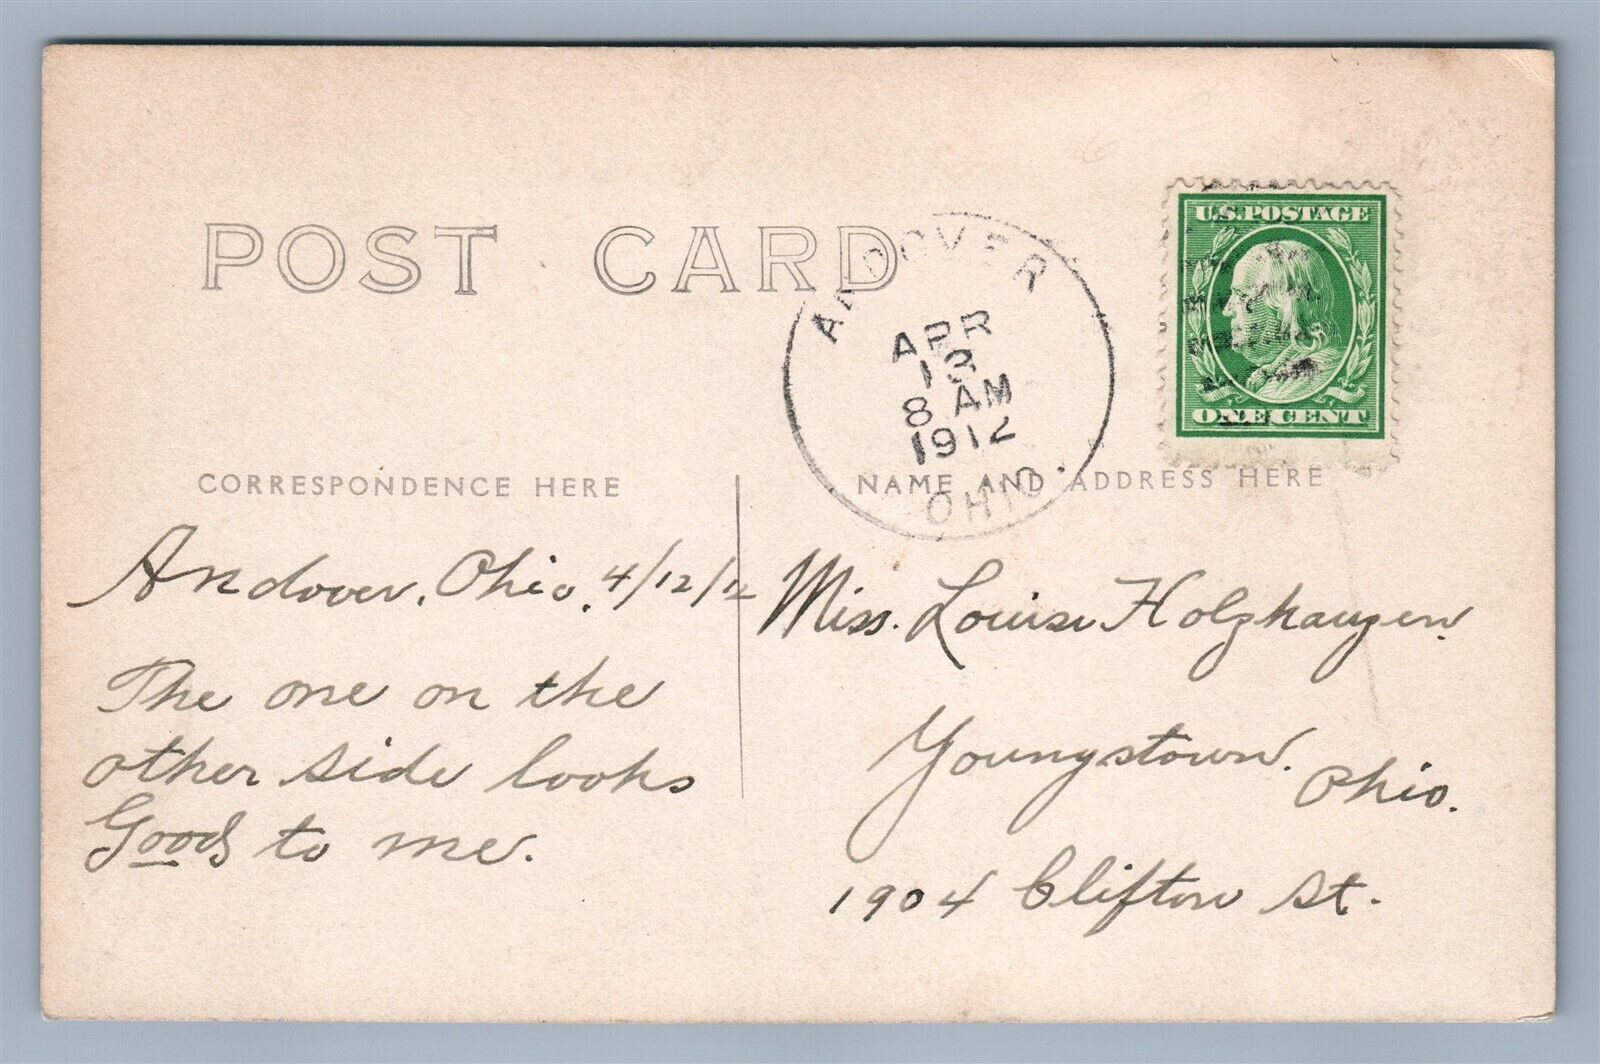 POST CARD
ANDOVER
APR
13
8 AM
1912
OHIO.
U.S. POSTAGE
ONE CENT
CORRESPONDENCE HERE
NAME AND ADDRESS HERE
Andover, Ohio, 4/12/12
The one on the
other side looks
Good to me.
Miss. Louise Holzhauzen.
Youngstown.
Ohio.
1904 Clifton St.